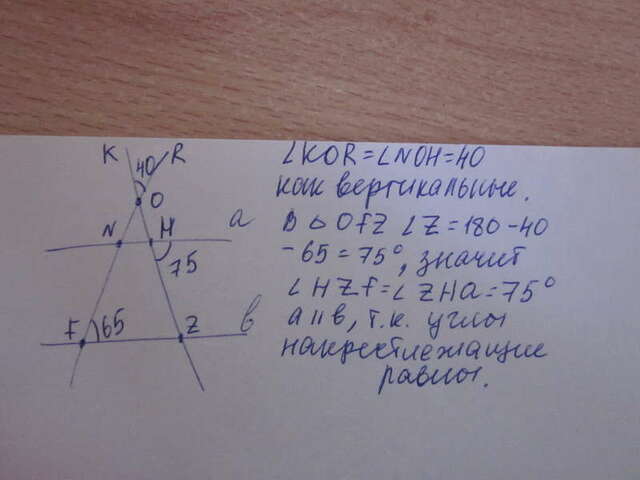 K
F
N
O
40
R
65
H
Z
75
a
b
∠KOR=∠NOH=40
как вертикальные.
В △ OFZ ∠Z=180-40
-65=75°, значит
∠HZF=∠ZHa=75°
a||b, т.к. углы
накрестлежащие
равны.